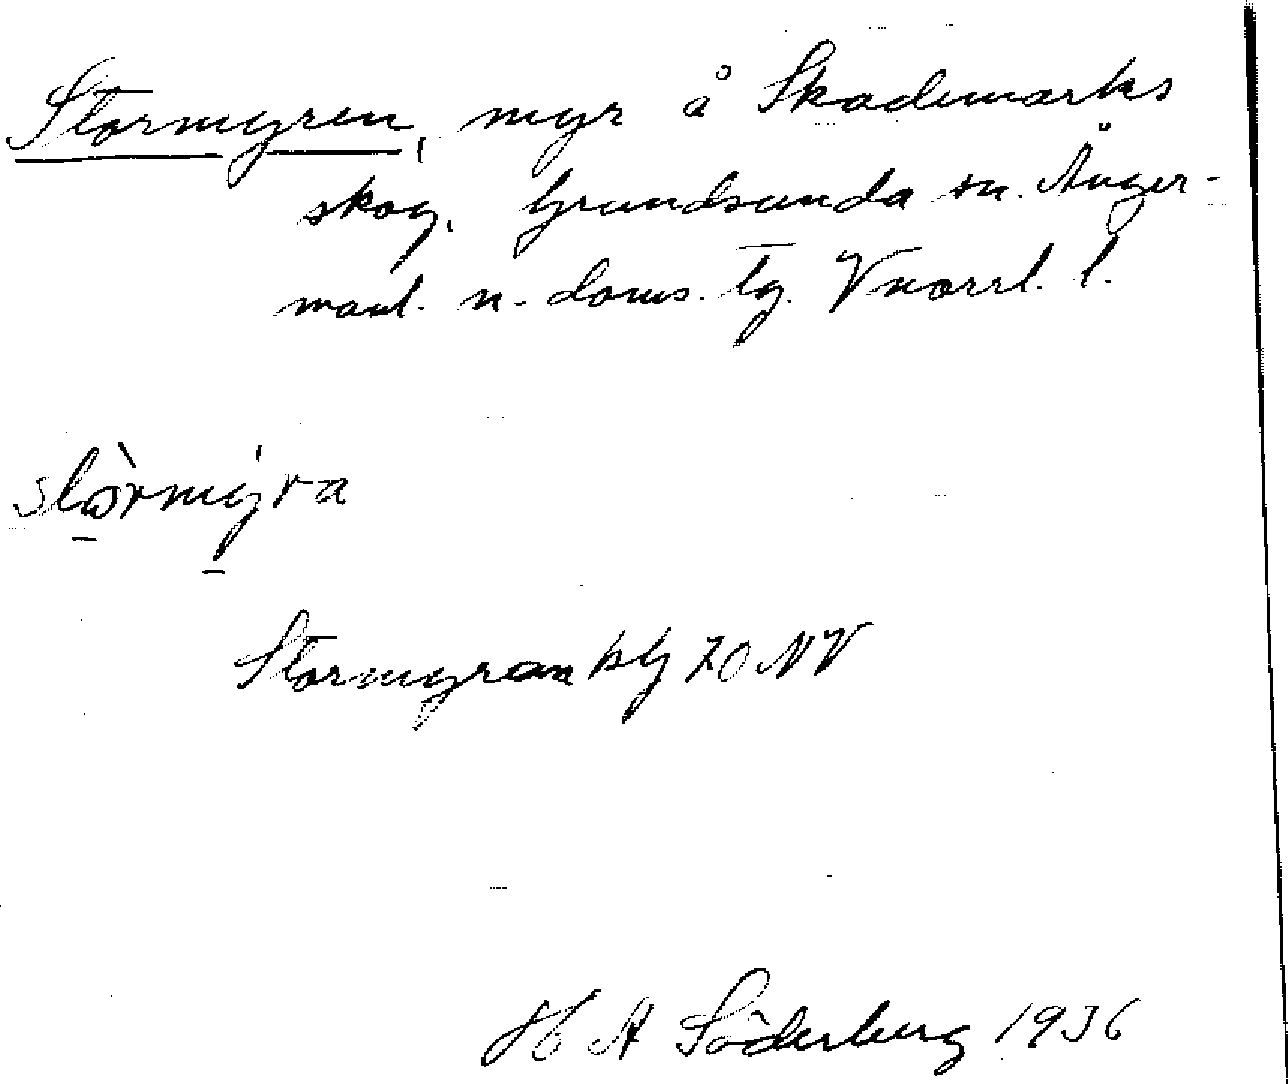 Stormyren, myr å Skademarks
skog. Grundsunda sn. Ånger-
manl. n. doms. tg. Vnorrl. l.
stòrmýra
Stormyran blg 70 NV
H A Söderberg 1936